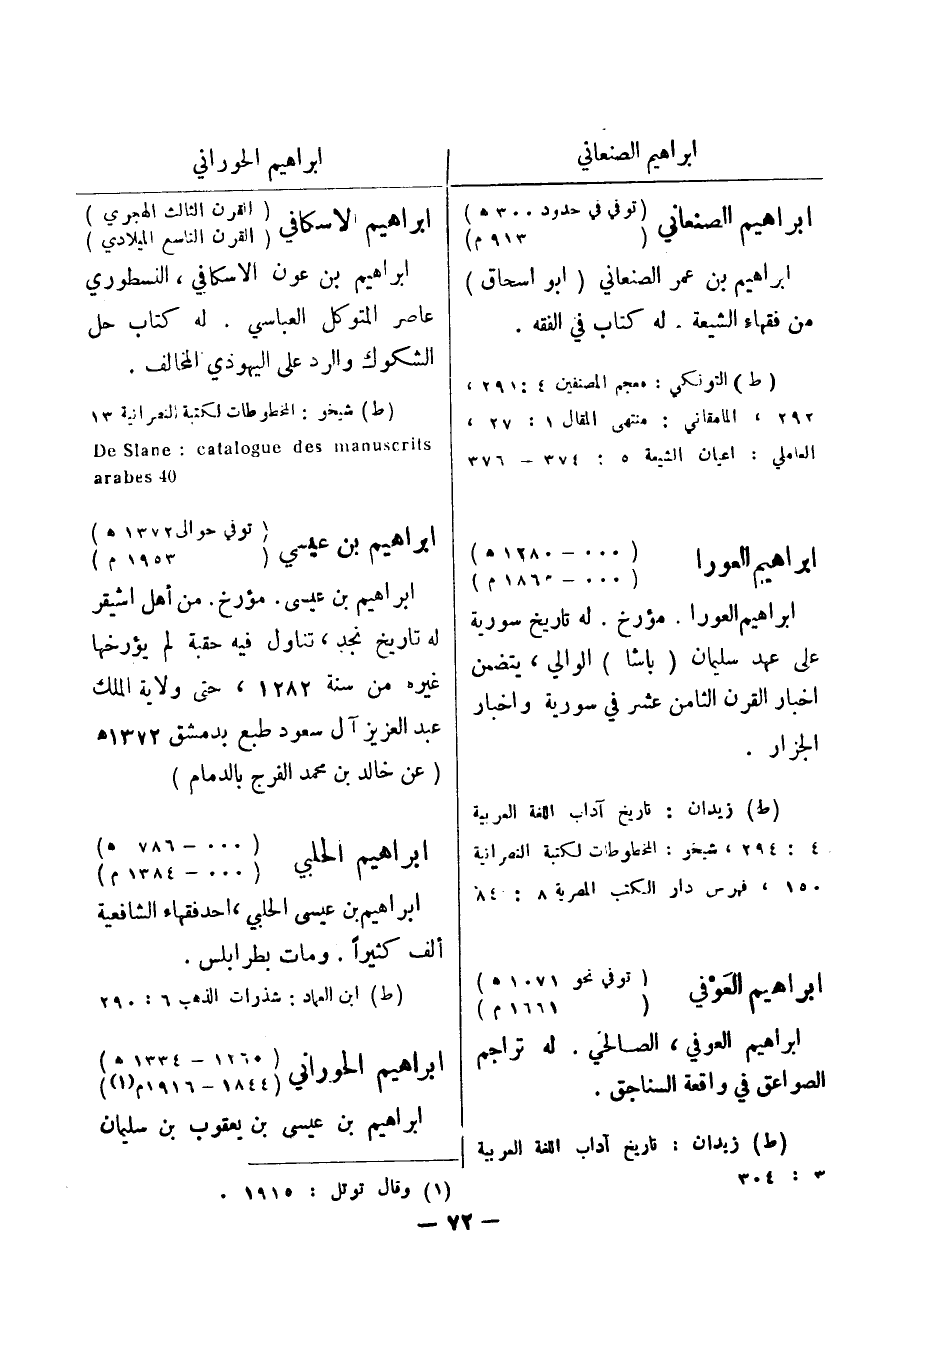 ابراهيم الصنعاني
ابراهيم الحوراني
ابراهيم الصنعاني (توفي في حدود ٣٠٠ ه)
( ٩١٣ م)
ابراهيم بن عمر الصنعاني ( ابو اسحاق )
من فقهاء الشيعة . له كتاب في الفقه .
(ط) التونكي : معجم المصنفين ٤ : ٢٩١ ،
٢٩٢ ، المامقاني : منتهى المقال ١ : ٢٧ ،
العاملي : اعيان الشيعة ٥ : ٣٧٤ – ٣٧٦
ابراهيم العورا (٠٠٠ – ١٢٨٠ ه)
(٠٠٠ – ١٨٦٠ م)
ابراهيم العورا . مؤرخ . له تاريخ سورية
على عهد سليمان ( باشا ) الوالي ، يتضمن
اخبار القرن الثامن عشر في سورية واخبار
الجزار .
(ط) زيدان : تاريخ آداب اللغة العربية
٤ : ٢٩٤ ، شيخو : المخطوطات لكتبة النصرانية
١٥٠ ، فهرس دار الكتب المصرية ٨ : ٨٤
ابراهيم العَوْفي ( توفي نحو ١٠٧١ ه)
( ١٦٦١ م)
ابراهيم العوفي ، الصالحي . له تراجم
الصواعق في واقعة السناجق .
(ط) زيدان : تاريخ آداب اللغة العربية
٣ : ٣٠٤
ابراهيم الاسكافي ( القرن الثالث الهجري )
( القرن التاسع الميلادي )
ابراهيم بن عون الاسكافي ، النسطوري
عاصر المتوكل العباسي . له كتاب حل
الشكوك والرد على اليهوذي المخالف .
(ط) شيخو : المخطوطات لكتبة النصرانية ١٣
De Slane : catalogue des manuscrits
arabes 40
ابراهيم بن عيسي ( توفي حوالى ١٣٧٢ ه)
( ١٩٥٣ م )
ابراهيم بن عيسى . مؤرخ . من أهل اشيقر
له تاريخ نجد ، تناول فيه حقبة لم يؤرخها
غيره من سنة ١٢٨٢ ، حتى ولاية الملك
عبد العزيز آل سعود طبع بدمشق ١٣٧٢ه
( عن خالد بن محمد الفرج بالدمام )
ابراهيم الحلبي (٠٠٠ – ٧٨٦ ه)
(٠٠٠ – ١٣٨٤ م)
ابراهيم بن عيسى الحلبي ، احد فقهاء الشافعية
ألف كثيراً . ومات بطرابلس .
(ط) ابن العماد : شذرات الذهب ٦ : ٢٩٠
ابراهيم الحوراني (١٢٦٠ – ١٣٣٤ ه)
(١٨٤٤ – ١٩١٦م(١))
ابراهيم بن عيسى بن يعقوب بن سليمان
(١) وقال توتل : ١٩١٥ .
– ٧٢ –